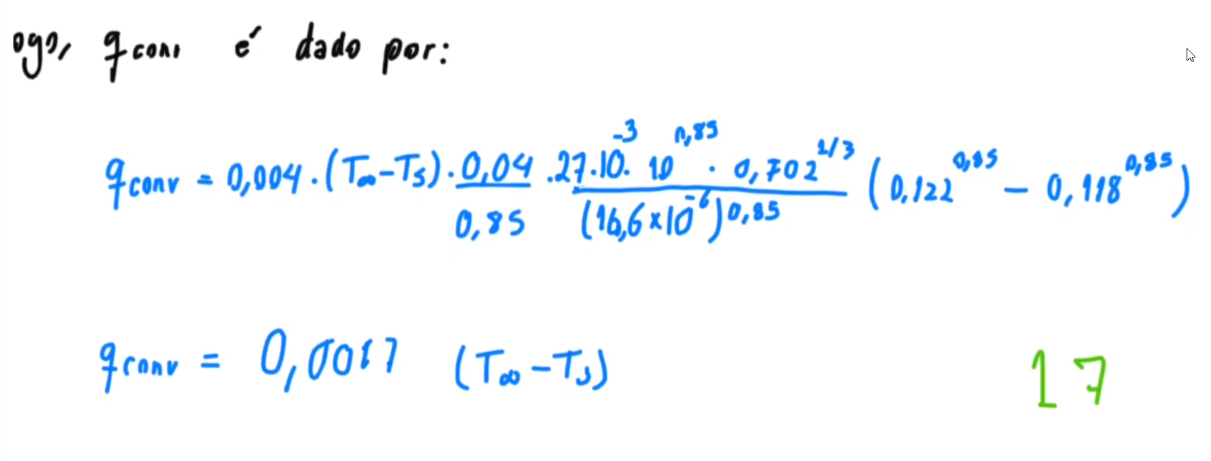 ogo, q conv é dado por:
q conv = 0,004 . (T∞ - Ts) . 0,04/0,85 . 27.10^-3 . 10^0,85 . 0,702^1/3 / (16,6×10^-6)^0,85 (0,122^0,85 - 0,118^0,85)
q conv = 0,0017 (T∞ - Ts)
17